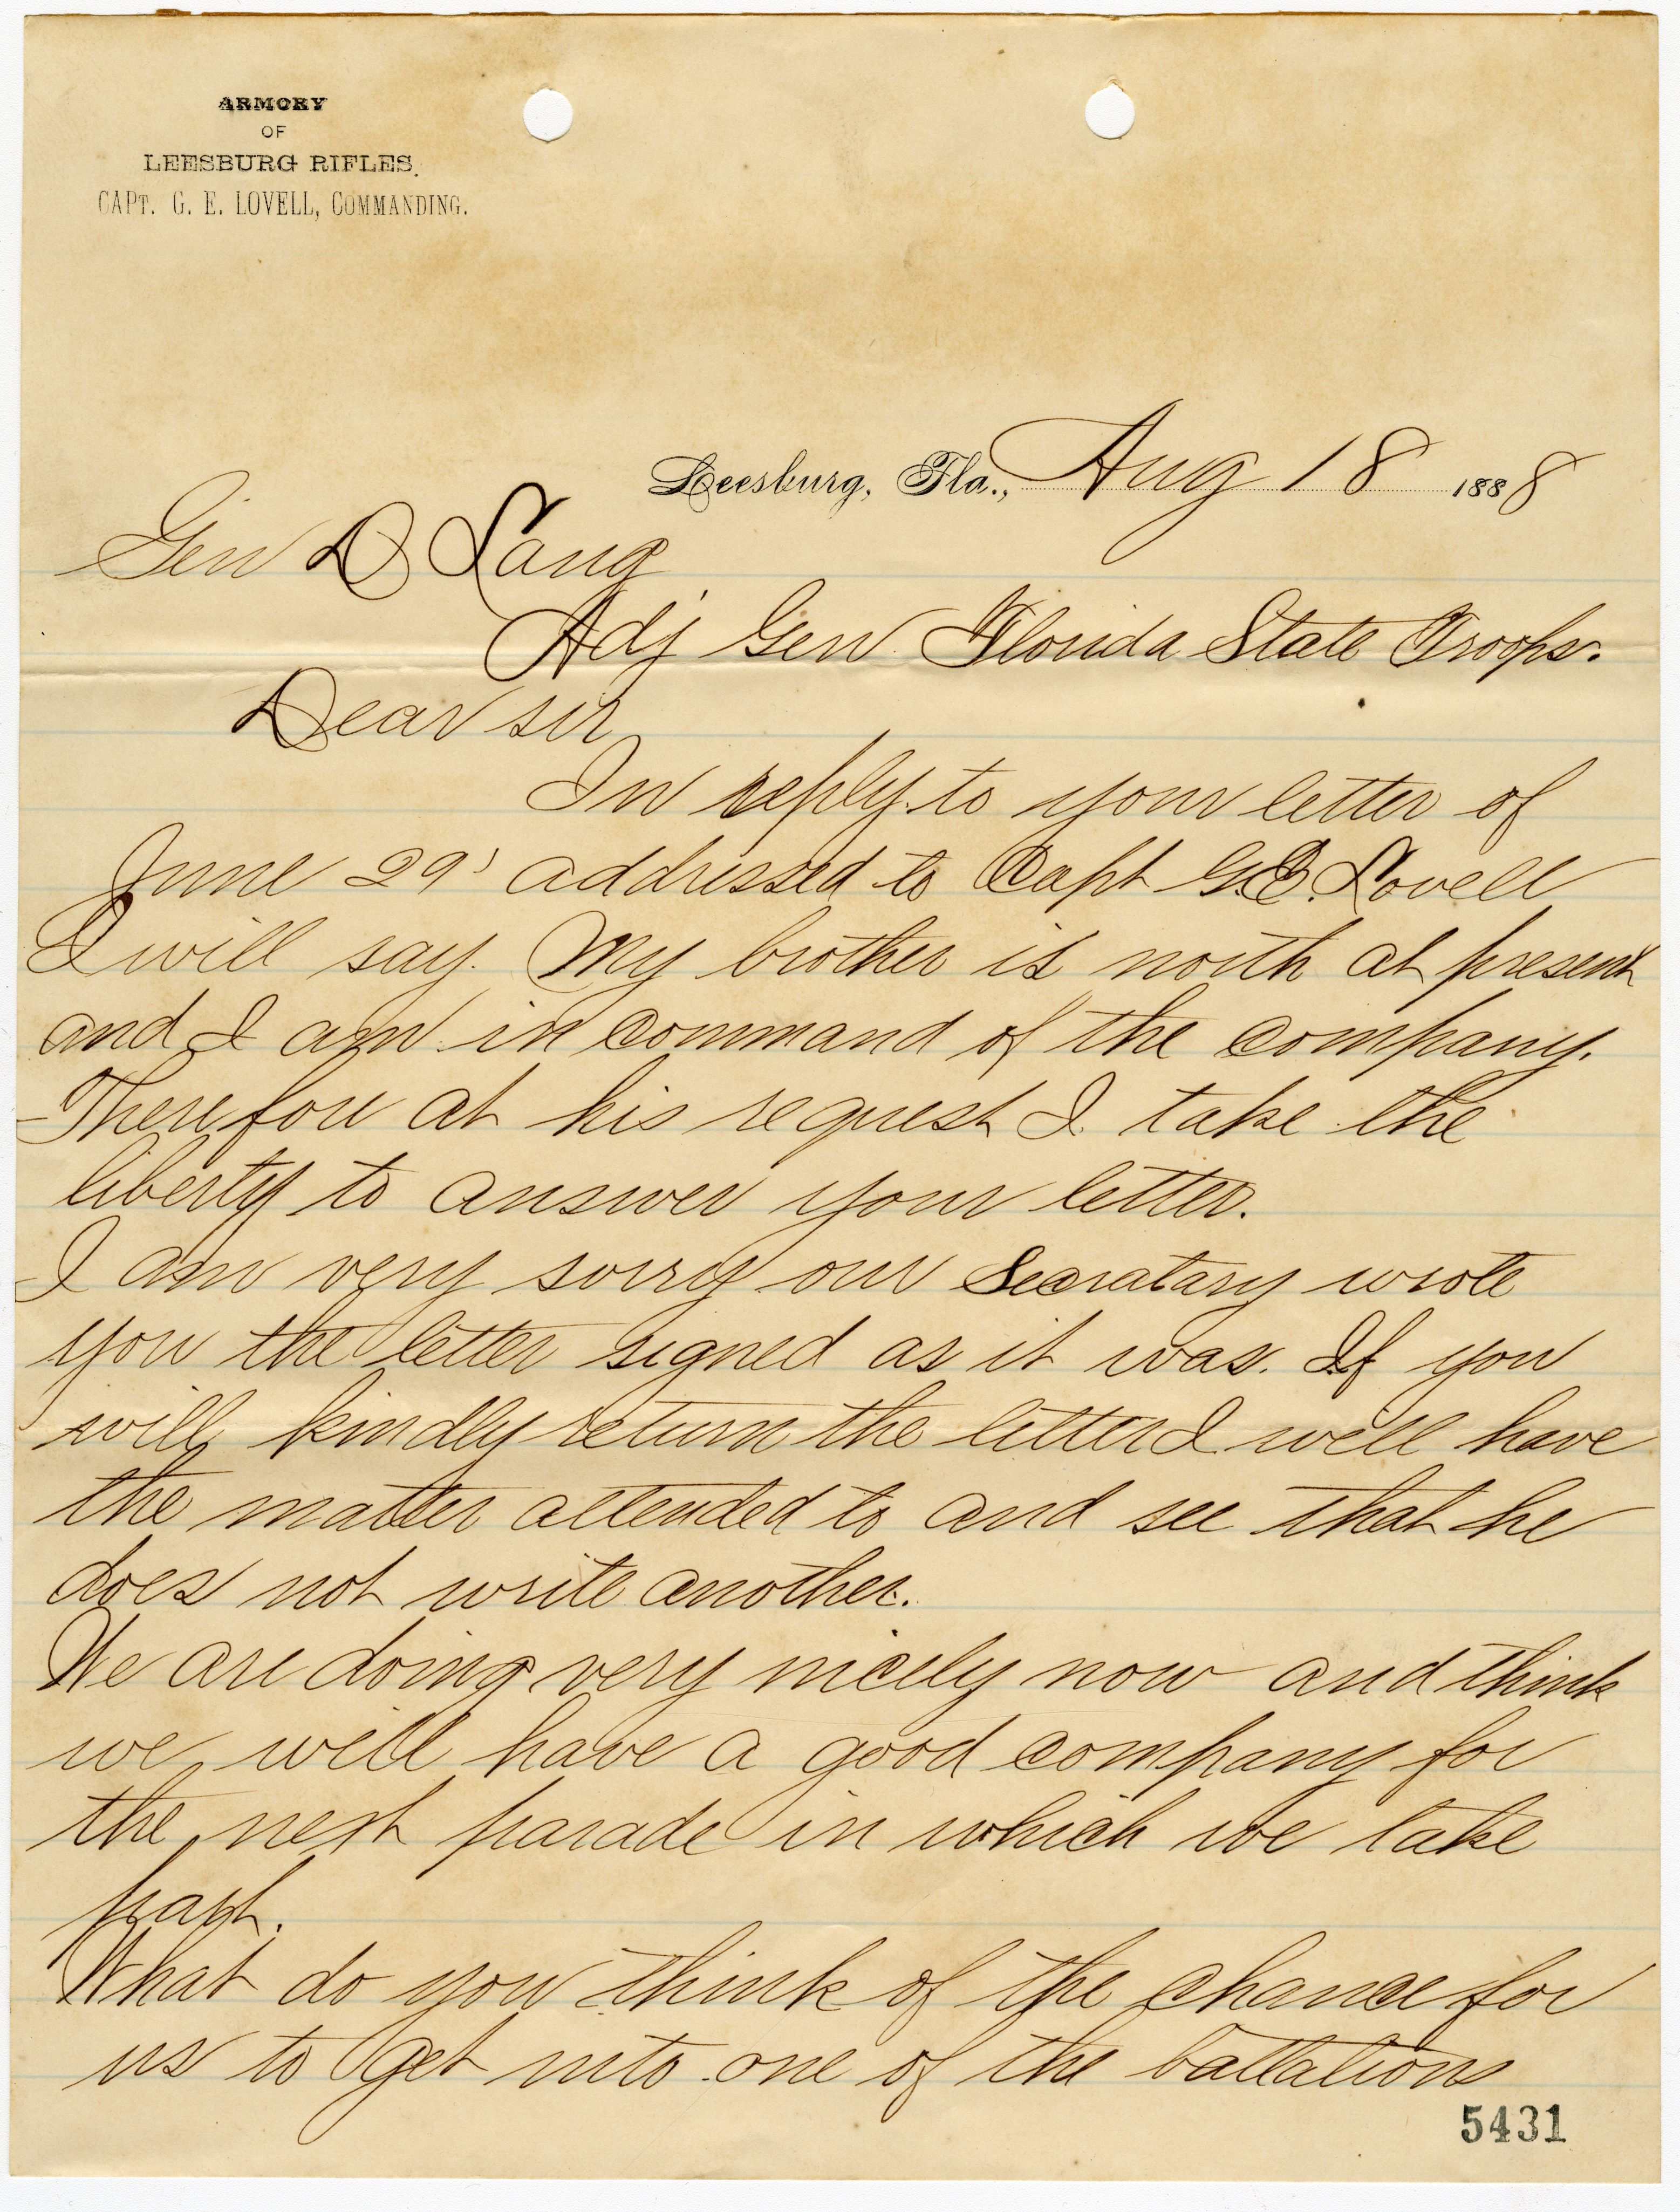 ARMORY
OF
LEESBURG RIFLES.
CAPT. G. E. LOVELL, COMMANDING.
Leesburg, Fla., Aug 18 1888
Gen D Lang
Adj Gen Florida State Troops.
Dear sir
In reply to your letter of
June 29' addressed to Capt G.E. Lovell
I will say. My brother is north at present
and I am in command of the company.
Therefore at his request I take the
liberty to answer your letter.
I am very sorry our Secratary wrote
you the letter signed as it was. If you
will kindly return the letter I will have
the matter attended to and see that he
does not write another.
We are doing very nicely now and think
we will have a good company for
the next parade in which we take
part.
What do you think of the chance for
us to get into one of the battalions
5431